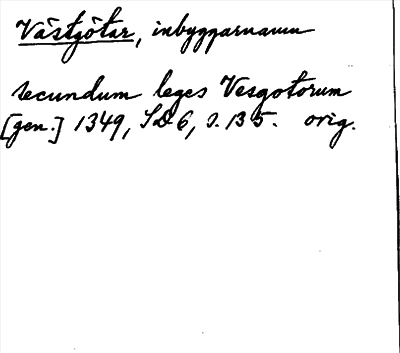 Västgötar, inbyggarnamn
secundum leges Vesgotorum
[gen.] 1349, SD 6, s. 135. orig.